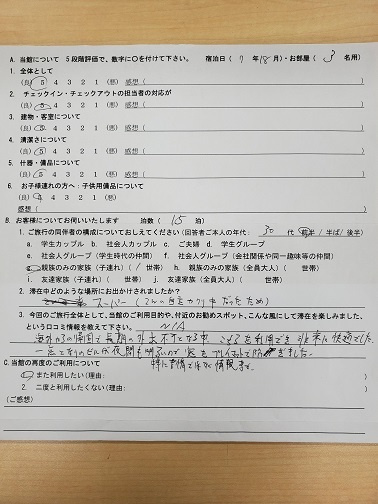 A. 当館について 5段階評価で、数字に○を付けて下さい。 宿泊日( 9 年 18 月)・お部屋( 3 名用)
1. 全体として
(良) 5 4 3 2 1 (悪) 感想(
2. チェックイン・チェックアウトの担当者の対応が
(良) 5 4 3 2 1 (悪) 感想(
3. 建物・客室について
(良) 5 4 3 2 1 (悪) 感想(
4. 清潔さについて
(良) 5 4 3 2 1 (悪) 感想(
5. 什器・備品について
(良) 5 4 3 2 1 (悪) 感想(
6. お子様連れの方へ:子供用備品について
(良) 5 4 3 2 1 (悪)
感想(
B. お客様についてお伺いいたします 泊数( 15 泊)
1. ご旅行の同伴者の構成についておしえてください(回答者ご本人の年代: 30 代 (前半 / 半ば / 後半)
a. 学生カップル b. 社会人カップル c. ご夫婦 d. 学生グループ
e. 社会人グループ(学生時代の仲間) f. 社会人グループ(会社関係や同一趣味等の仲間)
g. 親族のみの家族(子連れ)( 1 世帯) h. 親族のみの家族(全員大人)( 世帯)
i. 友達家族(子連れ)( 世帯) j. 友達家族(全員大人)( 世帯)
2. 滞在中どのような場所にお出かけされましたか?
スーパー (2weeks自主カクリ中だったため)
3. 今回のご旅行全体として、当館のご利用目的や、付近のお勧めスポット、こんな風にして滞在を楽しみました、
という口コミ情報を教えて下さい。 N/A
海外からの帰国で長期の外出不可となる中、こちらを利用でき非常に快適でした。
C. 当館の再度のご利用について
1) また利用したい(理由:
2. 二度と利用したくない(理由:
(ご感想)